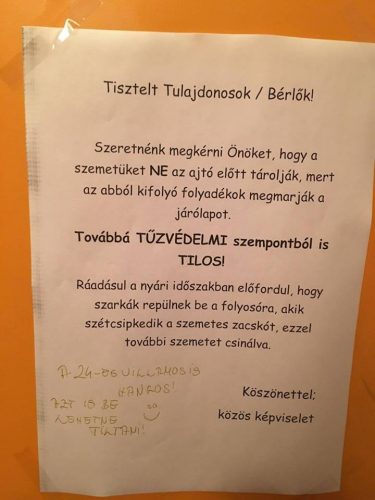 Tisztelt Tulajdonosok / Bérlők!
Szeretnénk megkérni Önöket, hogy a
szemetüket NE az ajtó előtt tárolják, mert
az abból kifolyó folyadékok megmarják a
járólapot.
Továbbá TŰZVÉDELMI szempontból is
TILOS!
Ráadásul a nyári időszakban előfordul, hogy
szarkák repülnek be a folyosóra, akik
szétcsipkedik a szemetes zacskót, ezzel
további szemetet csinálva.
A 24-ES VILLAMOS IS
HANGOS!
AZT IS BE
LEHETNE
TILTANI!
Köszönettel;
közös képviselet